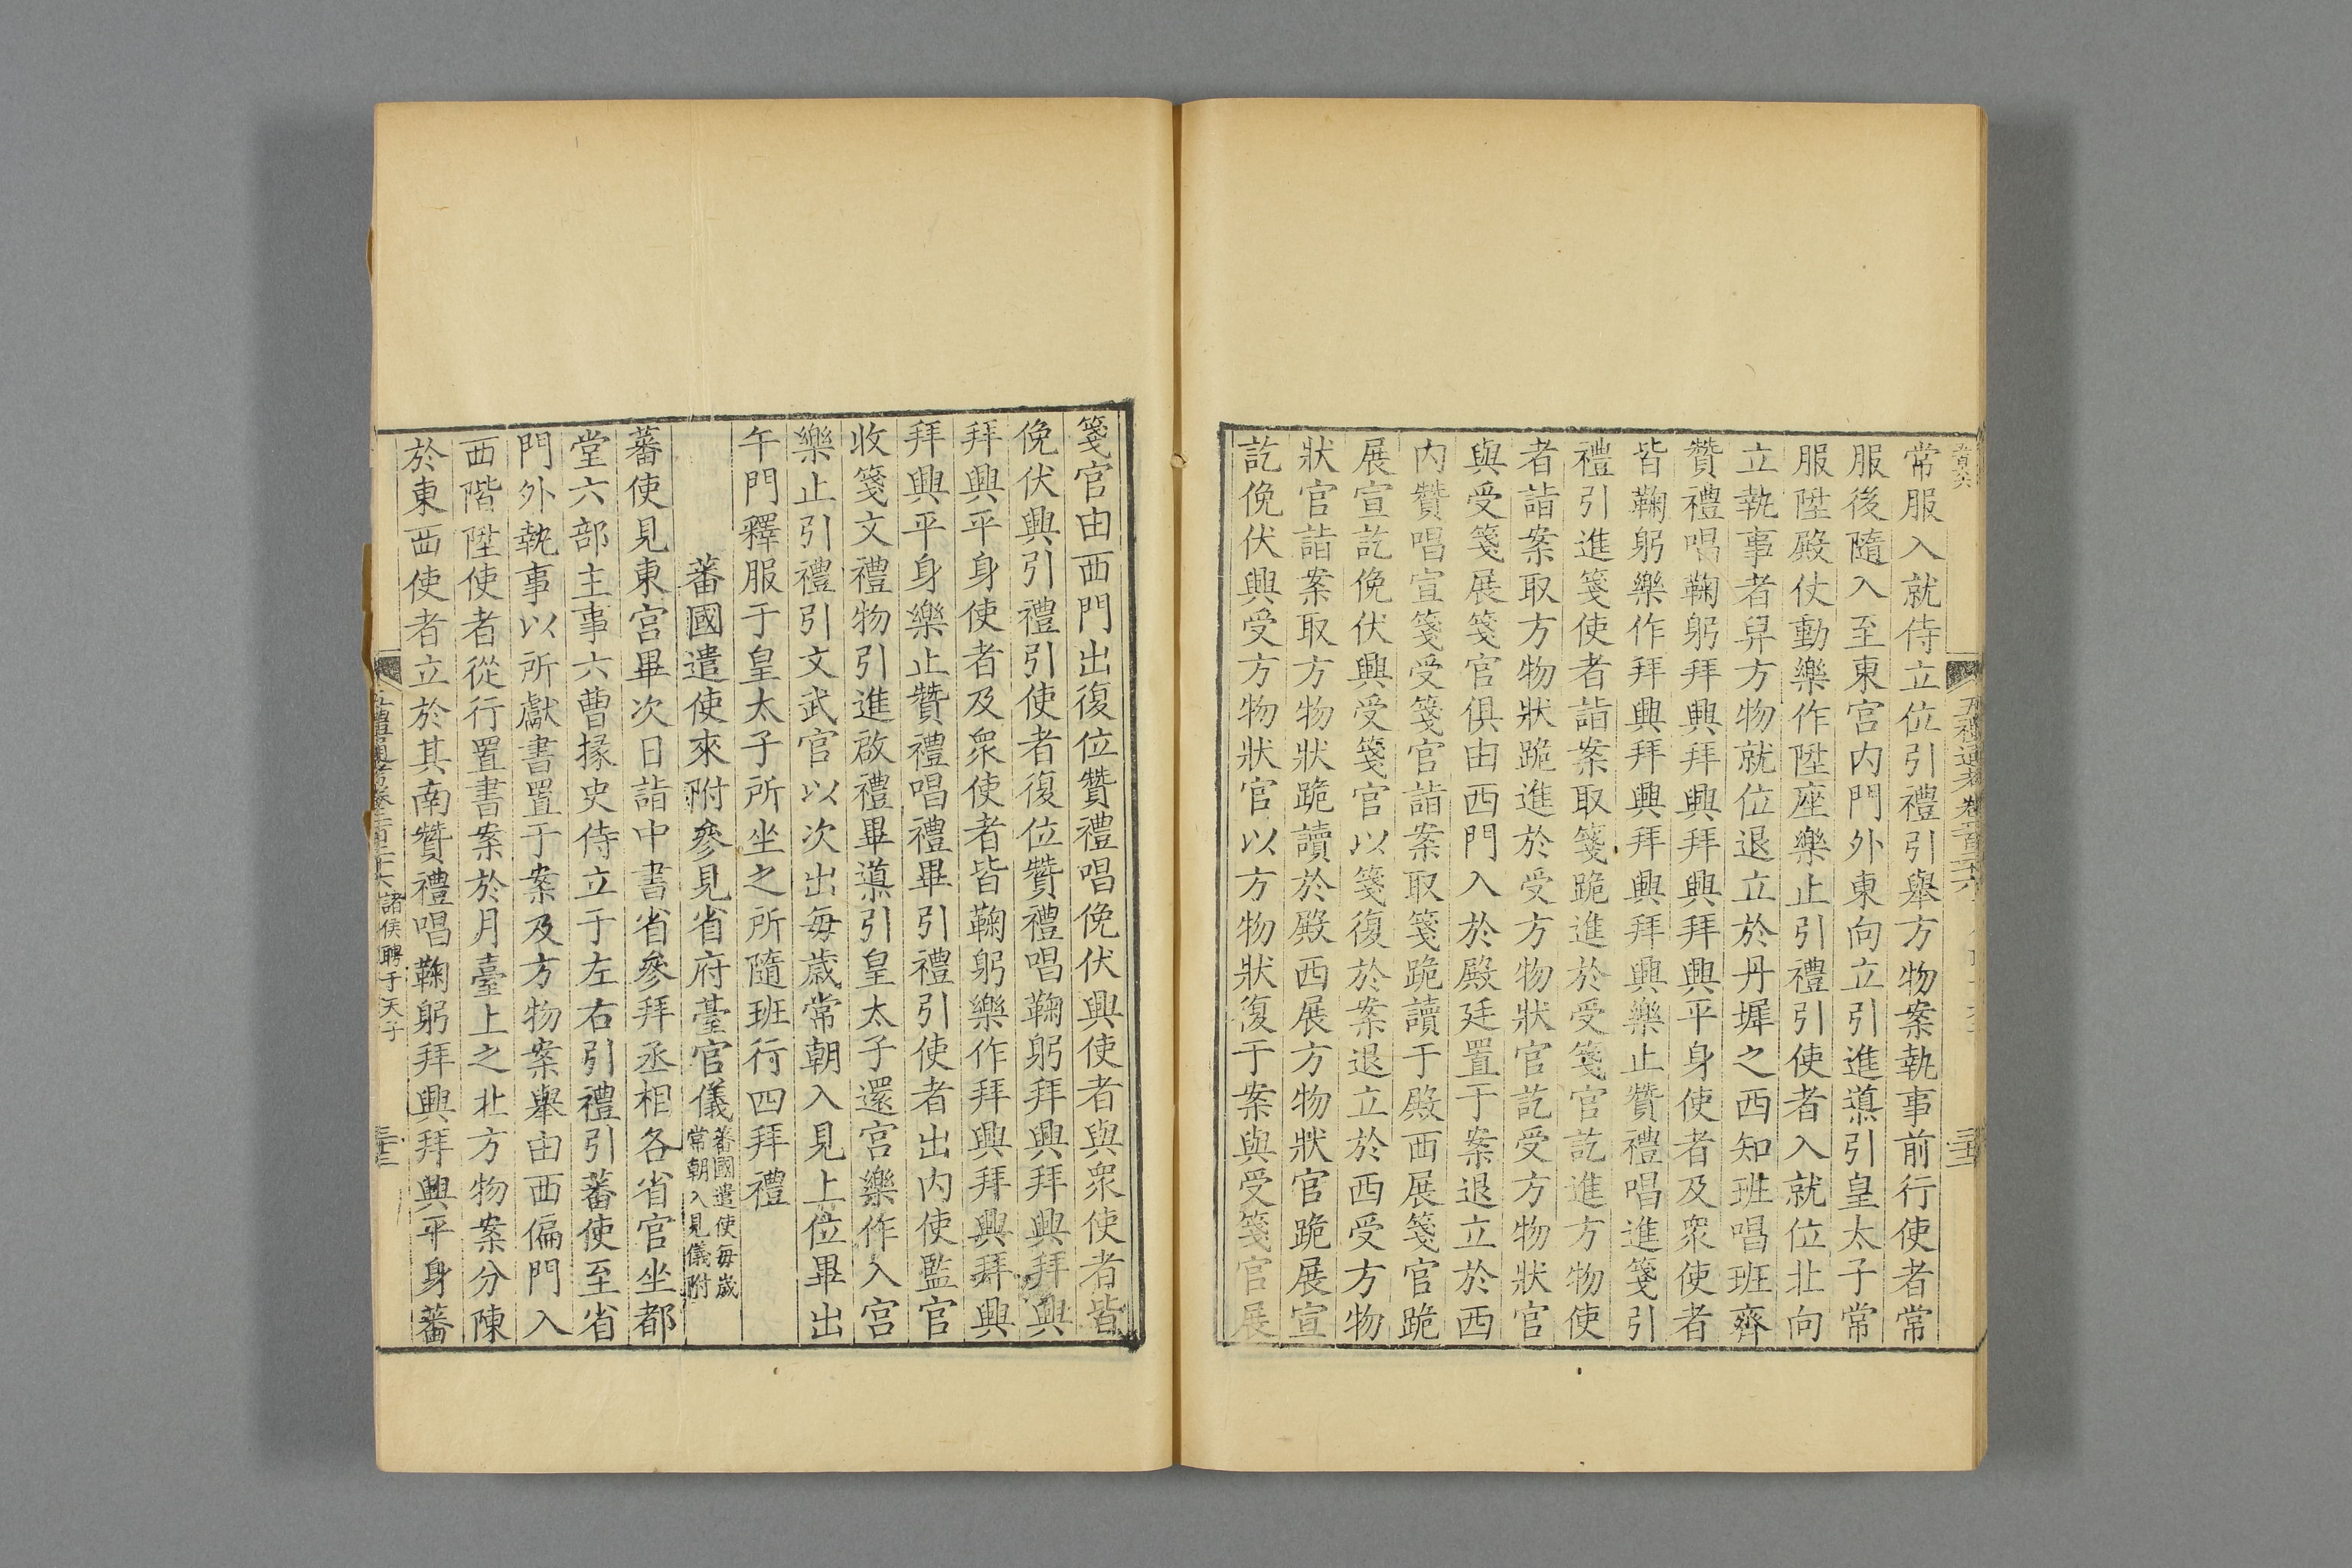 常服入就侍立位引禮引舉方物案執事前行使者常
服後隨入至東宮内門外東向立引進導引皇太子常
服陞殿仗動樂作陞座樂止引禮引使者入就位北向
立執事者舁方物就位退立於丹墀之西知班唱班齊
贊禮唱鞠躬拜興拜興拜興拜興平身使者及衆使者
皆鞠躬樂作拜興拜興拜興拜興樂止贊禮唱進箋引
禮引進箋使者詣案取箋跪進於受箋官訖進方物使
者詣案取方物狀跪進於受方物狀官訖受方物狀官
與受箋展箋官俱由西門入於殿廷置于案退立於西
内贊唱宣箋受箋官詣案取箋跪讀于殿西展箋官跪
展宣訖俛伏興受箋官以箋復於案退立於西受方物
狀官詣案取方物狀跪讀於殿西展方物狀官跪展宣
訖俛伏興受方物狀官以方物狀復于案與受箋官展
箋官由西門出復位贊禮唱俛伏興使者與衆使者皆
俛伏興引禮引使者復位贊禮唱鞠躬拜興拜興拜興
拜興平身使者及衆使者皆鞠躬樂作拜興拜興拜興
拜興平身樂止贊禮唱禮畢引禮引使者出内使監官
收箋文禮物引進啟禮畢導引皇太子還宮樂作入宮
樂止引禮引文武官以次出每歲常朝入見上位畢出
午門釋服于皇太子所坐之所隨班行四拜禮
蕃國遣使來附參見省府臺官儀蕃國遣使每歲
常朝入見儀附
蕃使見東宮畢次日詣中書省參拜丞相各省官坐都
堂六部主事六曹掾史侍立于左右引禮引蕃使至省
門外執事以所獻書置于案及方物案舉由西偏門入
西階陞使者從行置書案於月臺上之北方物案分陳
於東西使者立於其南贊禮唱鞠躬拜興拜興平身蕃
諸侯聘于天子